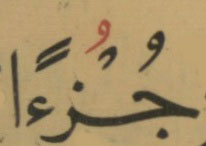 جُزُءًا